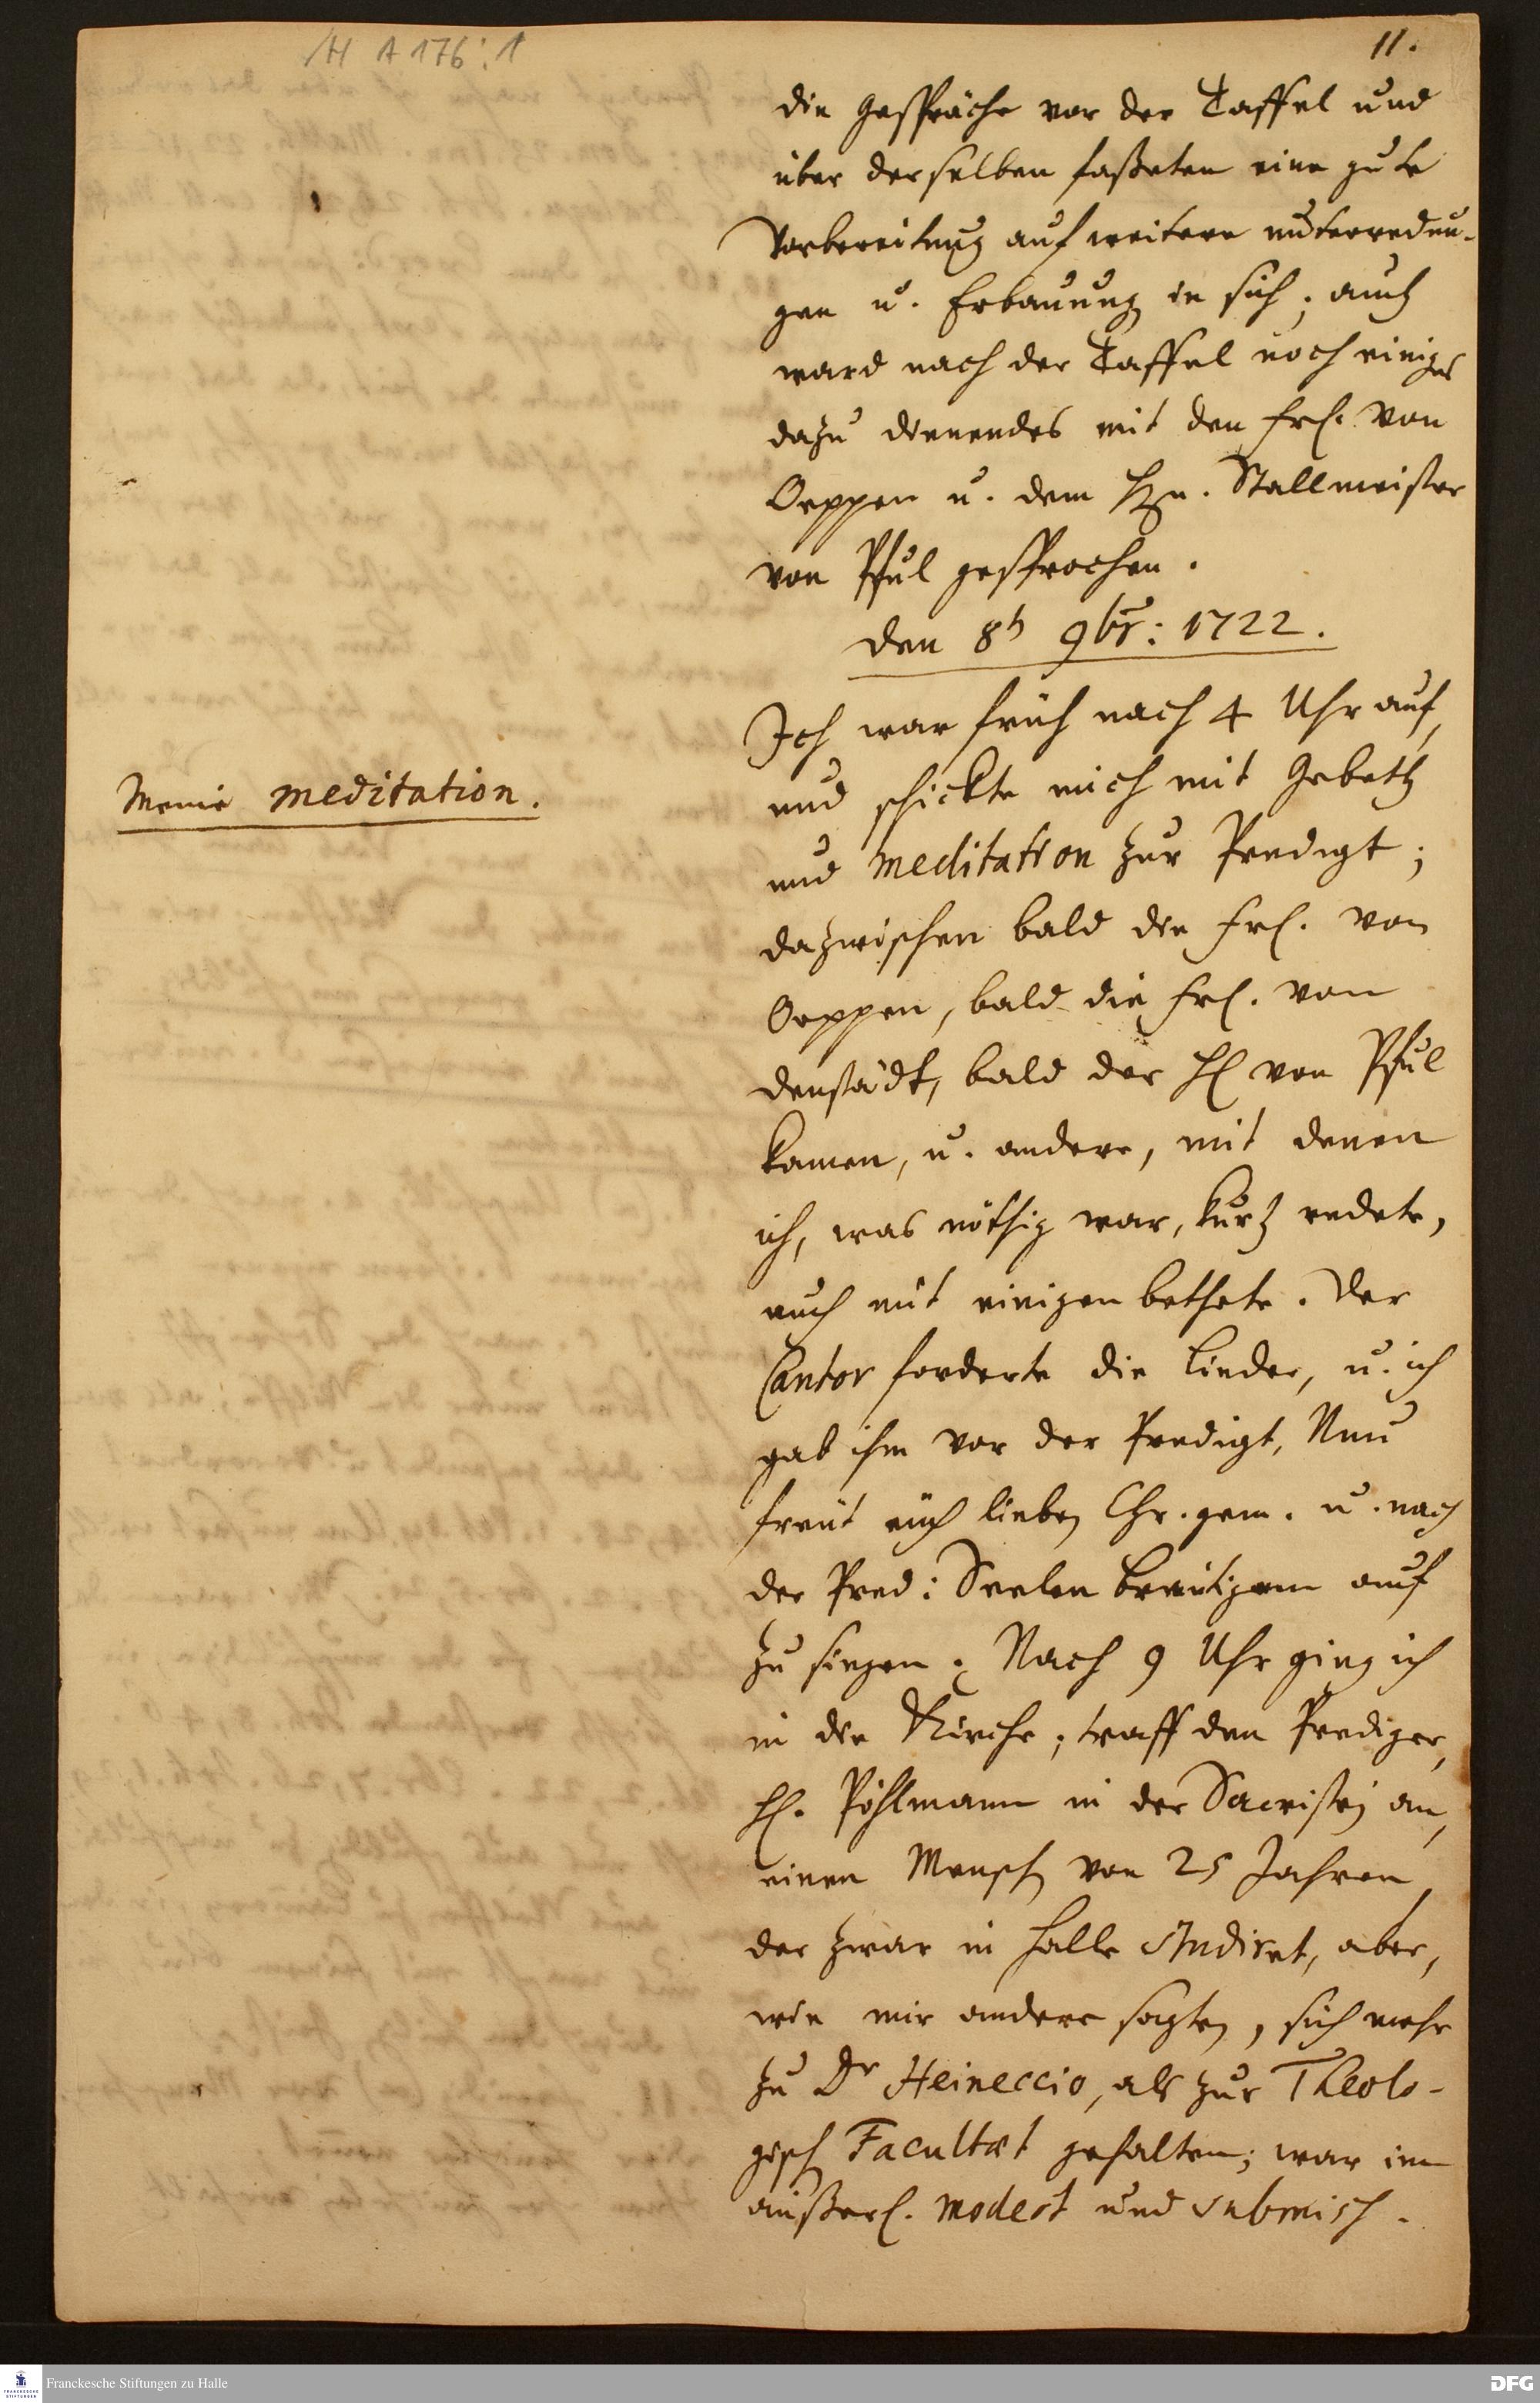 /H A 176:1
11.
die Gespräche vor der Taffel und
über derselben faßeten eine gute
Vorbereitung auf weitere unterredun-
gen u. Erbauung in sich; auch
ward nach der Taffel noch einiges
dazu dienendes mit den Frl. von
Oeppen u. dem Hrn. Stallmeister
von Pful gesprochen.
den 8t 9br: 1722.
Ich war früh nach 4 Uhr auf,
Meine meditation.
und schickte mich mit Gebeth
und meditation zur Predigt;
dazwischen bald die Frl. von
Oeppen, bald die Frl. von
denstädt, bald der H. von Pful
kamen, u. andere, mit denen
ich, was nöthig war, kurtz redete,
auch mit einigen bethete. Der
Cantor forderte die Lieder, u. ich
gab ihm vor der Predigt, Nun
freut euch lieben Chr. gem. u. nach
der Pred: Seelen Bräutigam auf
zu singen. Nach 9 Uhr ging ich
in die Kirche; traff den Prediger,
H. Pöhlmann in der Sacristey an,
einen Mensch von 25 Jahren,
der zwar in Halle studiret, aber,
wie mir andere sagten, sich mehr
zu Dr Heineccio, als zur Theolo-
gisch Facultæt gehalten; war im
äußerl. modest und submiss.
Franckesche Stiftungen zu Halle
DFG